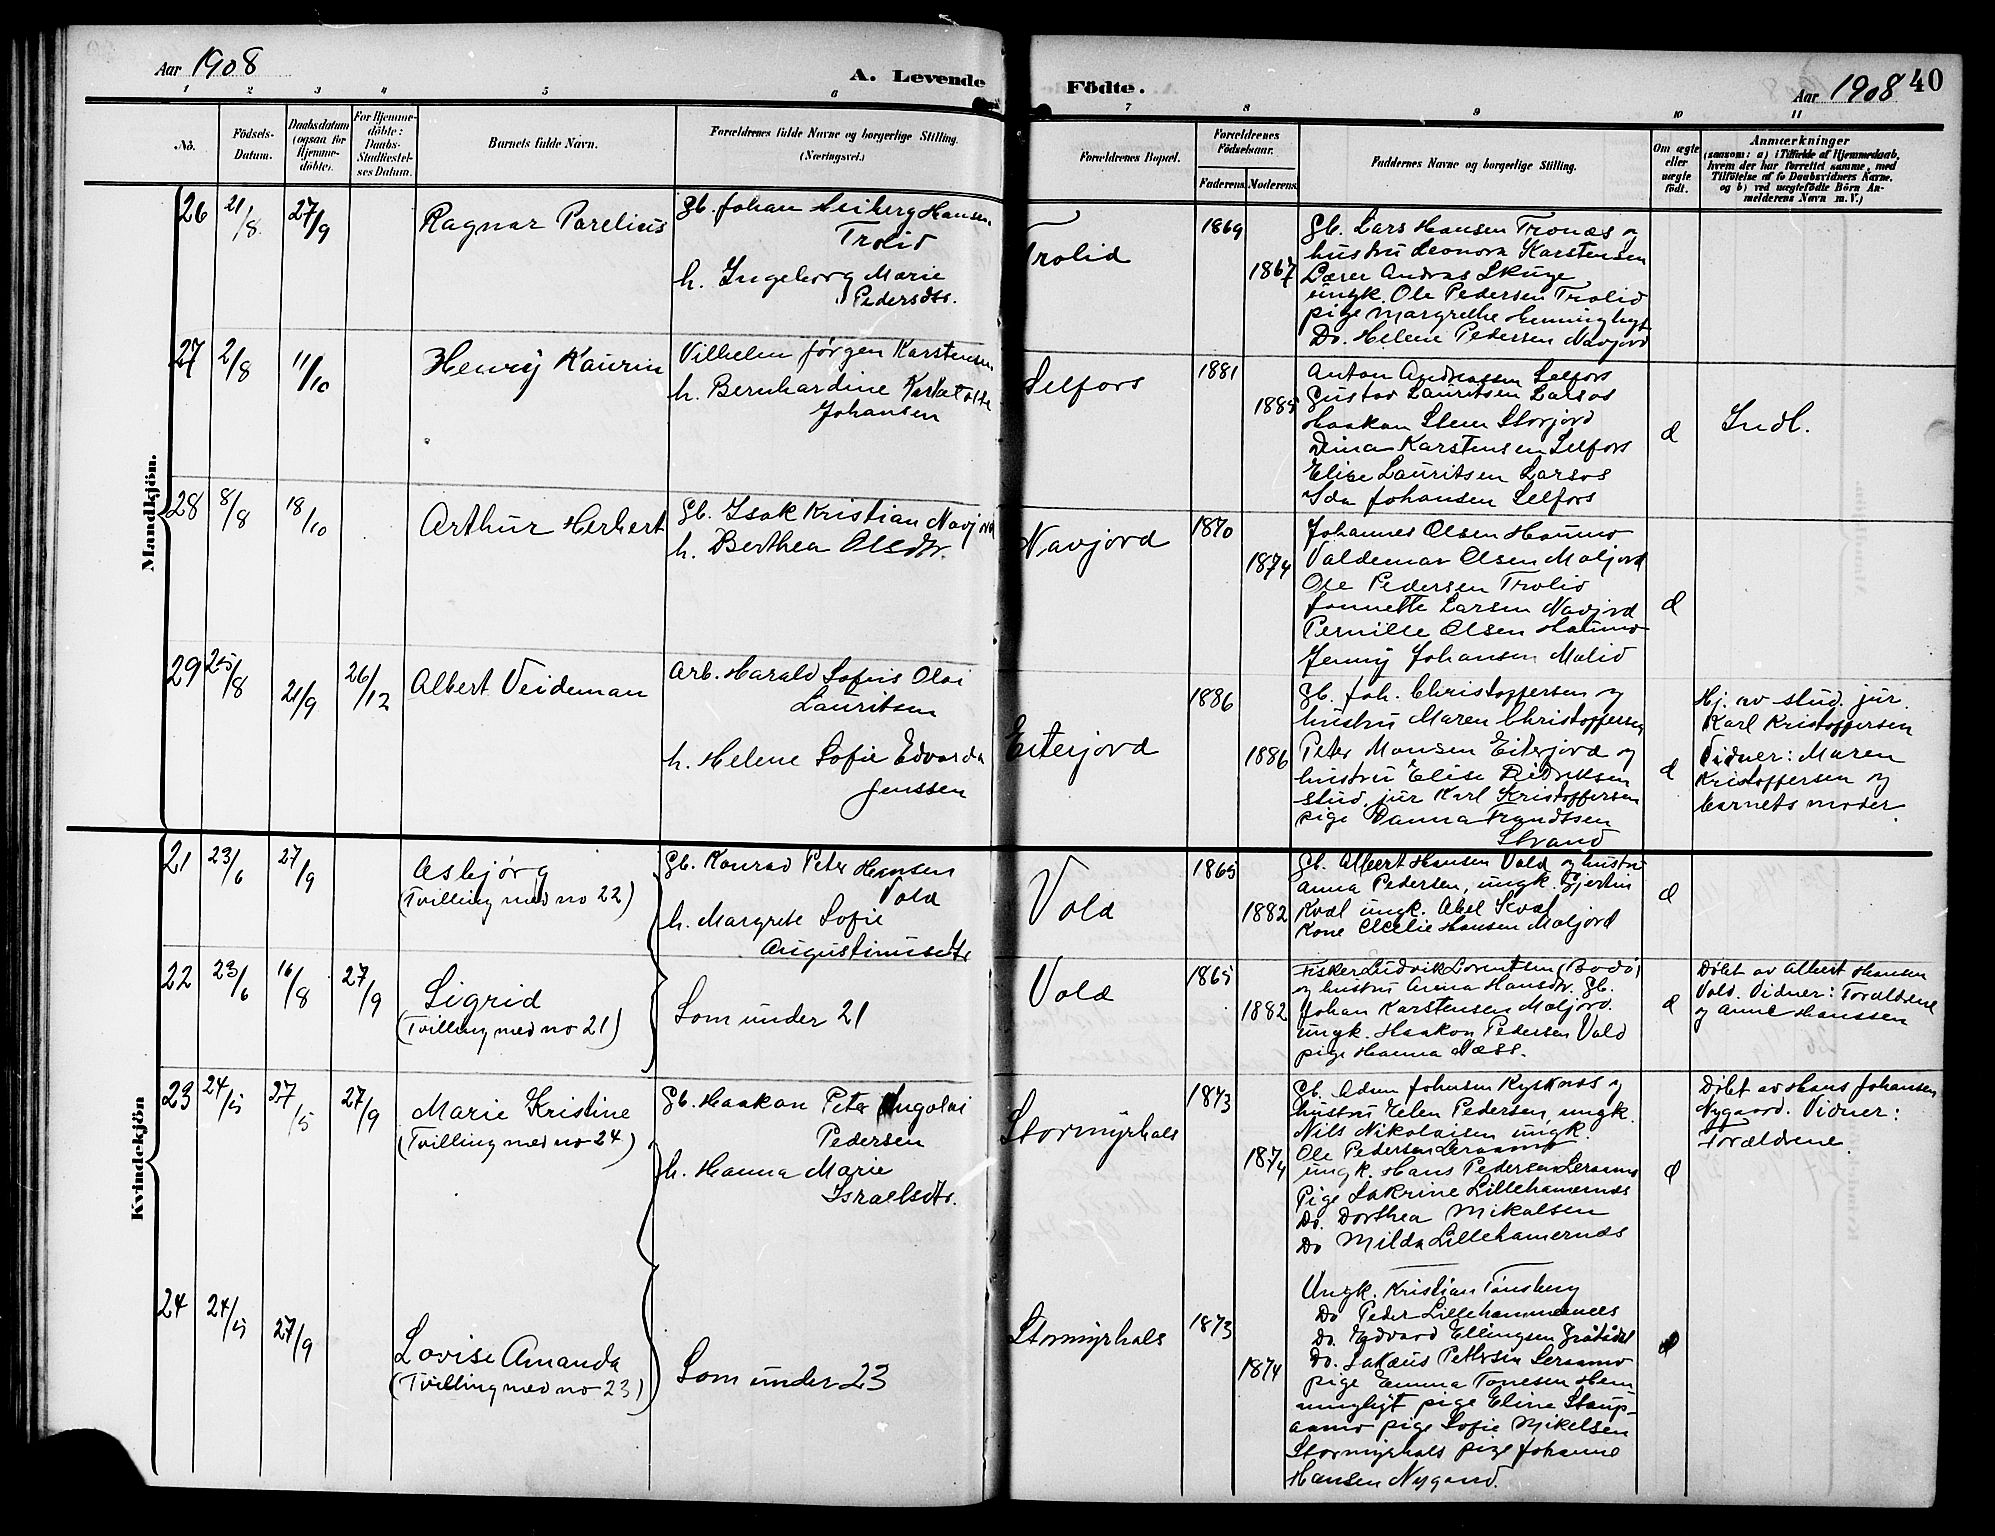 Aar 1908
A. Levende
Födte.
Aar 1908
40
1 2 3 4 5 6 7 8 9 10 11
No.
Födsels-
Datum.
Daabsdatum
(ogsaa for
Hjemme-
döbte).
For Hjemme-
döbte:
Daabs-
Stadfæstel-
ses Datum.
Barnets fulde Navn.
Forældrenes fulde Navne og borgerlige Stilling.
(Næringsvei.)
Forældrenes Bopæl.
Forældrenes
Födselsaar.
Faderens.
Moderens.
Faddernes Navne og borgerlige Stilling.
Om ægte
eller
uægte
födt.
Anmærkninger
(saasom: a) i Tilfælde af Hjemmedaab,
hvem der har forrettet samme, med
Tilföielse af to Daabsvidners Navne.
og b) ved uægtefödte Börn An-
melderens Navn m. V.)
Mandkjön.
26 21/8 27/9
Ragnar Parelius
Gb. Johan Seiberg Hansen
Trolid
h. Ingeborg Marie
Pedersdtr.
Trolid
1869
1867
Gb. Lars Hansen Tronæs og
hustru Leonora Karstensen
Lærer Andreas Skuge
ungk. Ole Pedersen Trolid
pige Margrethe Hemminghyt
Do. Helene Pedersen Navjord
27 2/8 11/10
Henry Kaurin
Vilhelm Jørgen Karstensen
h. Bernhardine
Johansen
Selfors
1881
1885
Anton Andreassen Selfors
Gustav Lauritsen Larsos
Haakon Steen Storjord
Dina Karstensen Selfors
Elise Lauritsen Larsos
Ida Johansen Selfors
Indl.
28 8/8 18/10
Arthur Herbert
Gb. Isak Kristian Navjord
h. Berthea Olsdtr.
Navjord
1870
1874
Johannes Olsen Haumo
Valdemar Olsen Maljord
Ole Pedersen Trolid
Jannette Larsen Navjord
Pernille Olsen Haumo
Jenny Johansen Molid
29 25/8 21/9 26/12
Albert Veideman
Arb. Harald Sofus Olai
Lauritsen
h. Helene Sofie Edvarda
Jenssen
Eiterjord
1886
1886
Gb. Joh. Christoffersen og
hustru Maren Christoffersen
Peter Monsen Eiterjord og
hustru Elise Didriksen
stud. jur Karl Kristoffersen
pige Danna Trondtsen
Strand
Hj. av stud. jur.
Karl Kristoffersen
Vidner: Maren
Kristoffersen og
barnets moder.
Kvindekjön
21 23/6 27/9
Asbjørg
(Tvilling med no 22)
Gb. Konrad Peter Hansen
Vold
h. Margrete Sofie
Augustinusdtr
Vold
1865
1882
Gb. Albert Hansen Vold og hustru
Anna Pedersen, ungk. Gjertin
Kvæl ungk. Abel Kvæl
Kone Cecilie Hansen Maljord
22 23/6 16/8 27/9
Sigrid
(Tvilling med no 21)
Som under 21
Vold
1865
1882
Fisker Ludvik Lorentsen (Bodø)
og hustru Anna Hansdtr. Gb.
Johan Karstensen Maljord.
ungk. Haakon Pedersen Vold
pige Hanna Næss.
Døbt av Albert Hansen
Vold. Vidner: Forældrene
og Anne Hanssen
23 24/5 27/5 27/9
Marie Kristine
(Tvilling med no 24)
Gb. Haakon Peter Ingolai
Pedersen
h. Hanna Marie
Israelsdtr.
Stormyrhals
1873
1874
Gb. Adam Johnsen Kysknes og
hustru Elen Pedersen, ungk.
Nils Nikolaisen ungk.
Ole Pedersen Leraamo
ungk. Hans Pedersen Leraamo
Pige Sakrine Lillehamernæs
Do. Dorthea Mikalsen
Do Milda Lillehamernæs
Døbt av Hans Johansen
Nygaard. Vidner:
Forældrene.
24 24/5 27/9
Lovise Amanda
(Tvilling med no 23)
Som under 23
Stormyrhals
1873
1874
Ungk. Kristian Tønsberg
Do Peder Lillehammernes
Do. Edvard Ellingsen Gråtådal
Do. Sakæus Pettersen Leraamo
pige Emma Tonesen Hem-
minghyt pige Eline Staup-
aamo pige Sofie Mikelsen
Stormyrhals pige Johanne
Hansen Nygaard.